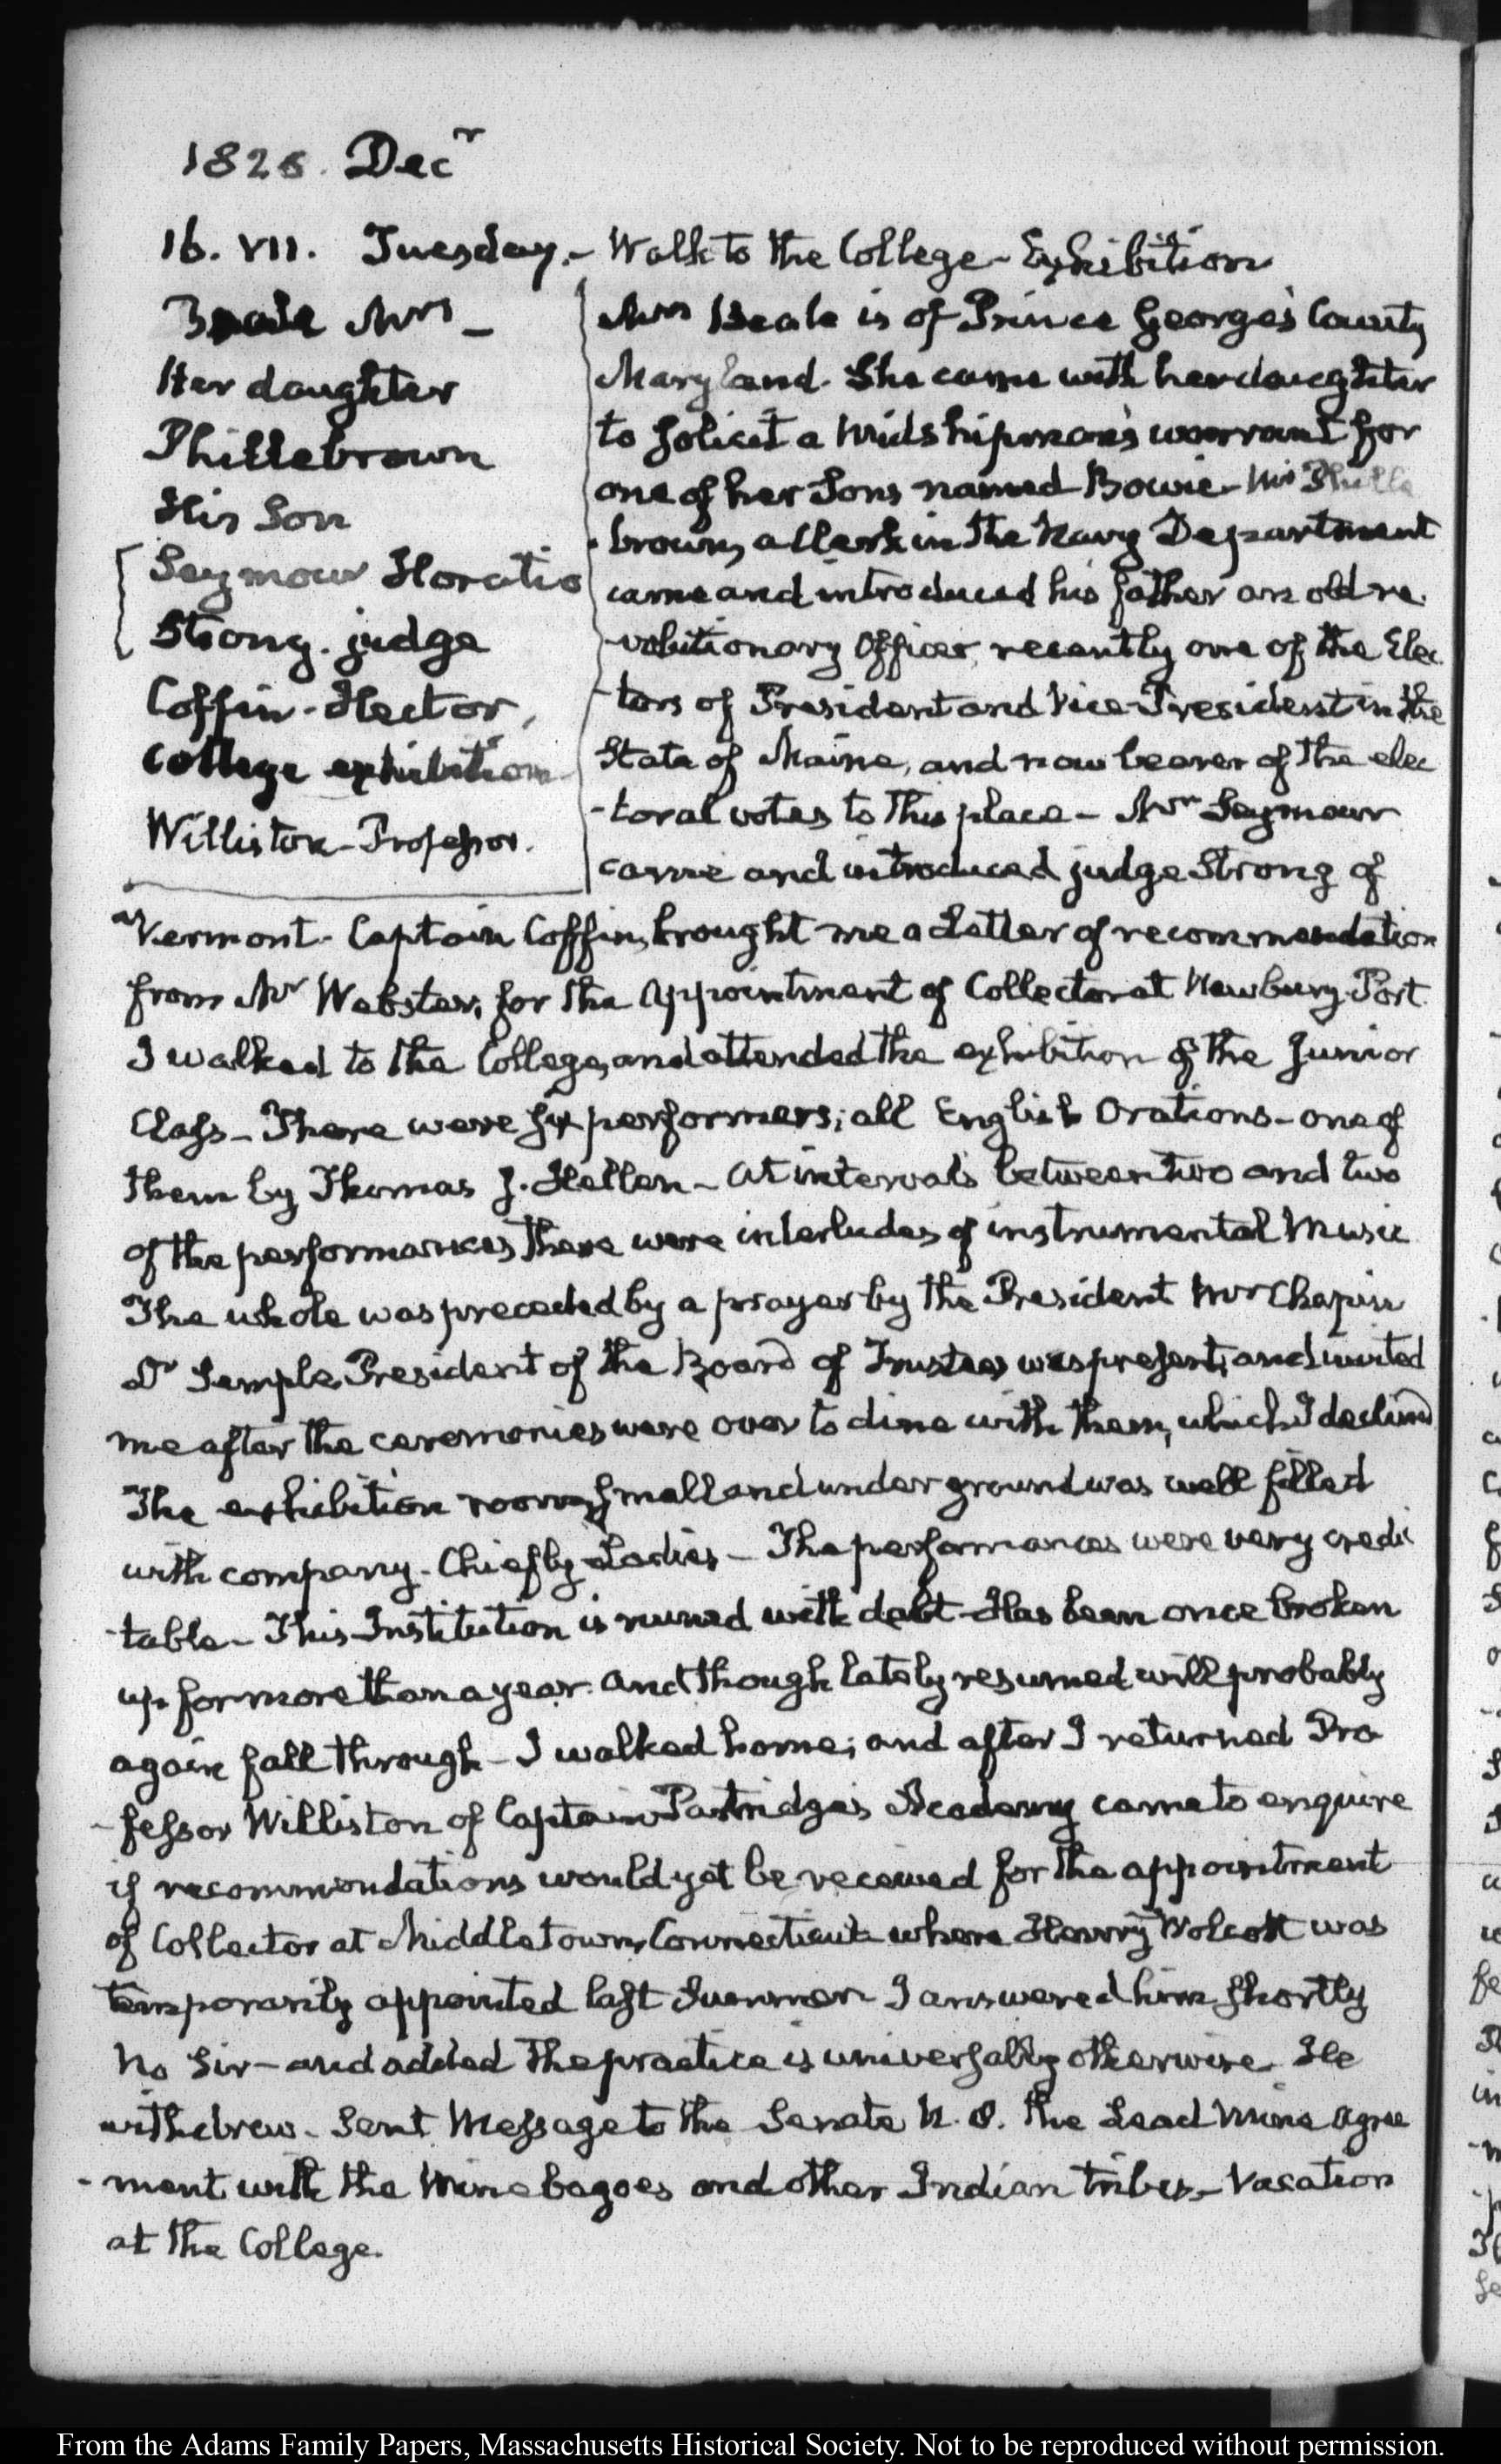 1828. Decr
16. VII. Tuesday.- Walk to the College- Exhibition
Beale Mrs -
Her daughter
Phillebrown
His Son
Seymour Horatio
Strong. judge
Coffin- Hector,
College exhibition
Williston- Professor.
Mrs Beale is of Prince George's County
Maryland. She came with her daughter
to solicit a Midshipman's warrant for
one of her Sons named Bowie- Mr Phille
-brown, a Clerk in the Navy Department
came and introduced his father an old re-
-volutionary Officer, recently one of the Elec
-tors of President and Vice-President in the
State of Maine, and now bearer of the elec
-toral votes to this place- Mr Seymour
came and introduced judge Strong of
Vermont- Captain Coffin, brought me a Letter of recommendation
from Mr Webster, for the Appointment of Collector at Newbury-Port
I walked to the College, and attended the exhibition of the Junior
Class- There were six performers; all English Orations- one of
them by Thomas J. Hellen- At intervals between two and two
of the performances there were interludes of instrumental Music
The whole was preceded by a prayer by the President Mr Chapin
Dr Semple, President of the Board of Trustees was present, and invited
me after the ceremonies were over to dine with them, which I declined
The exhibition room, small and under ground was well filled
with company- Chiefly Ladies- The performances were very credi
-table- This Institution is ruined with debt- Has been once broken
up for more than a year. And though lately resumed will probably
again fall through- I walked home; and after I returned Pro
-fessor Williston of Captain Partridge's Academy came to enquire
if recommendations would yet be received for the appointment
of Collector at Middletown, Connecticut where Henry Wolcott was
temporarily appointed last Summer I answered him shortly
No Sir- and added the practice is universally otherwise- He
withdrew- Sent Message to the Senate N. 8. the Lead Mine agree
-ment with the Winebagoes and other Indian tribes- Vacation
at the College.
From the Adams Family Papers, Massachusetts Historical Society. Not to be reproduced without permission.